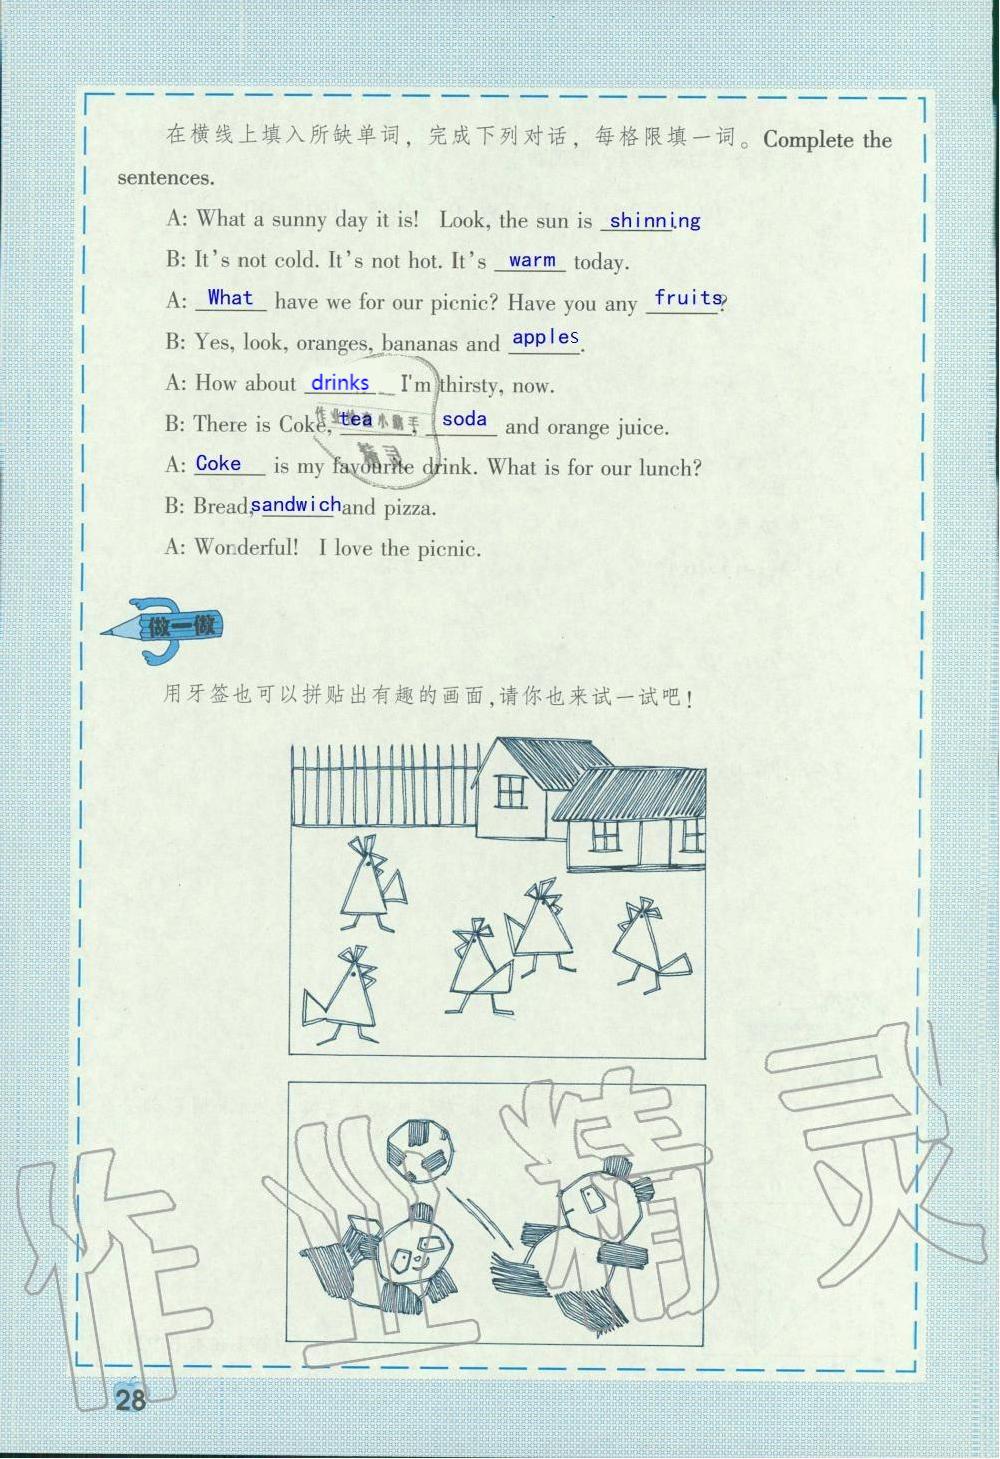 在横线上填入所缺单词，完成下列对话，每格限填一词。Complete the
sentences.
A: What a sunny day it is! Look, the sun is shinning.
B: It's not cold. It's not hot. It's warm today.
A: What have we for our picnic? Have you any fruits?
B: Yes, look, oranges, bananas and apples.
A: How about drinks I'm thirsty, now.
B: There is Coke, tea, soda and orange juice.
A: Coke is my favourite drink. What is for our lunch?
B: Bread, sandwich and pizza.
A: Wonderful! I love the picnic.
做一做
用牙签也可以拼贴出有趣的画面,请你也来试一试吧!
作业精灵
28